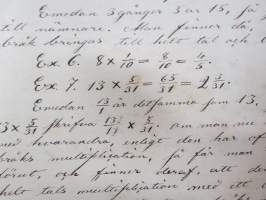 Emedan 3 gånger 5 är 15, så
till nämnare. Man finner då,
bråk bringas till helt tal och
Ex. 6. 8 × 1/10 = 8/10 = 4/5.
Ex. 7. 13 × 5/31 = 65/31 = 2 3/31.
Emedan 13/1 är detsamma som 13,
13 × 5/31 skrifva 13/1 × 5/31. om man nu
med hvarandra, enligt den här of
bråks multiplikation, så får man
förut, och finner deraf, att de
helt tals multiplikation med ett